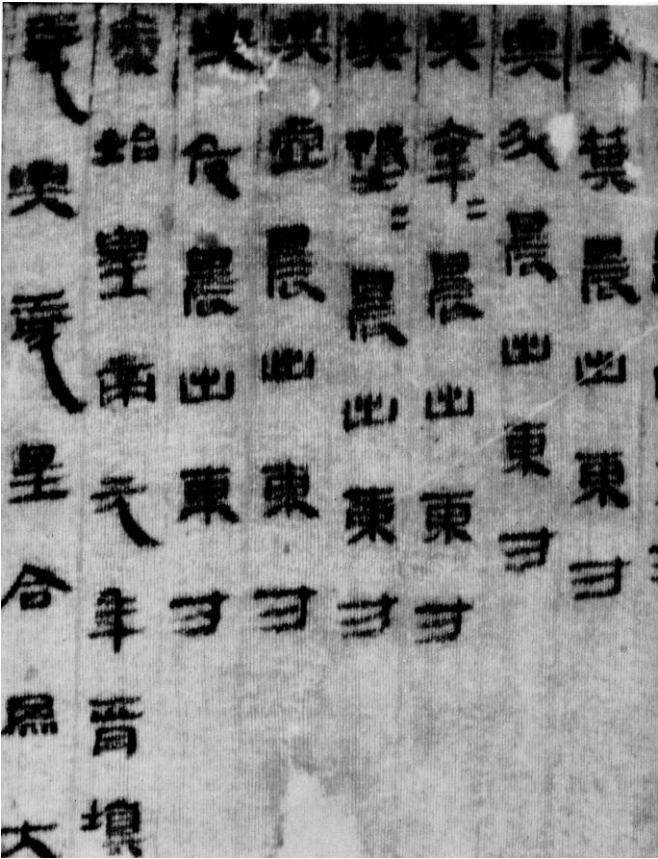 與箕晨出東方
與斗晨出東方
與牽＝晨出東方
與婺＝晨出東方
與虛晨出東方
與危晨出東方
秦始皇帝元年正月填
與 星合 大